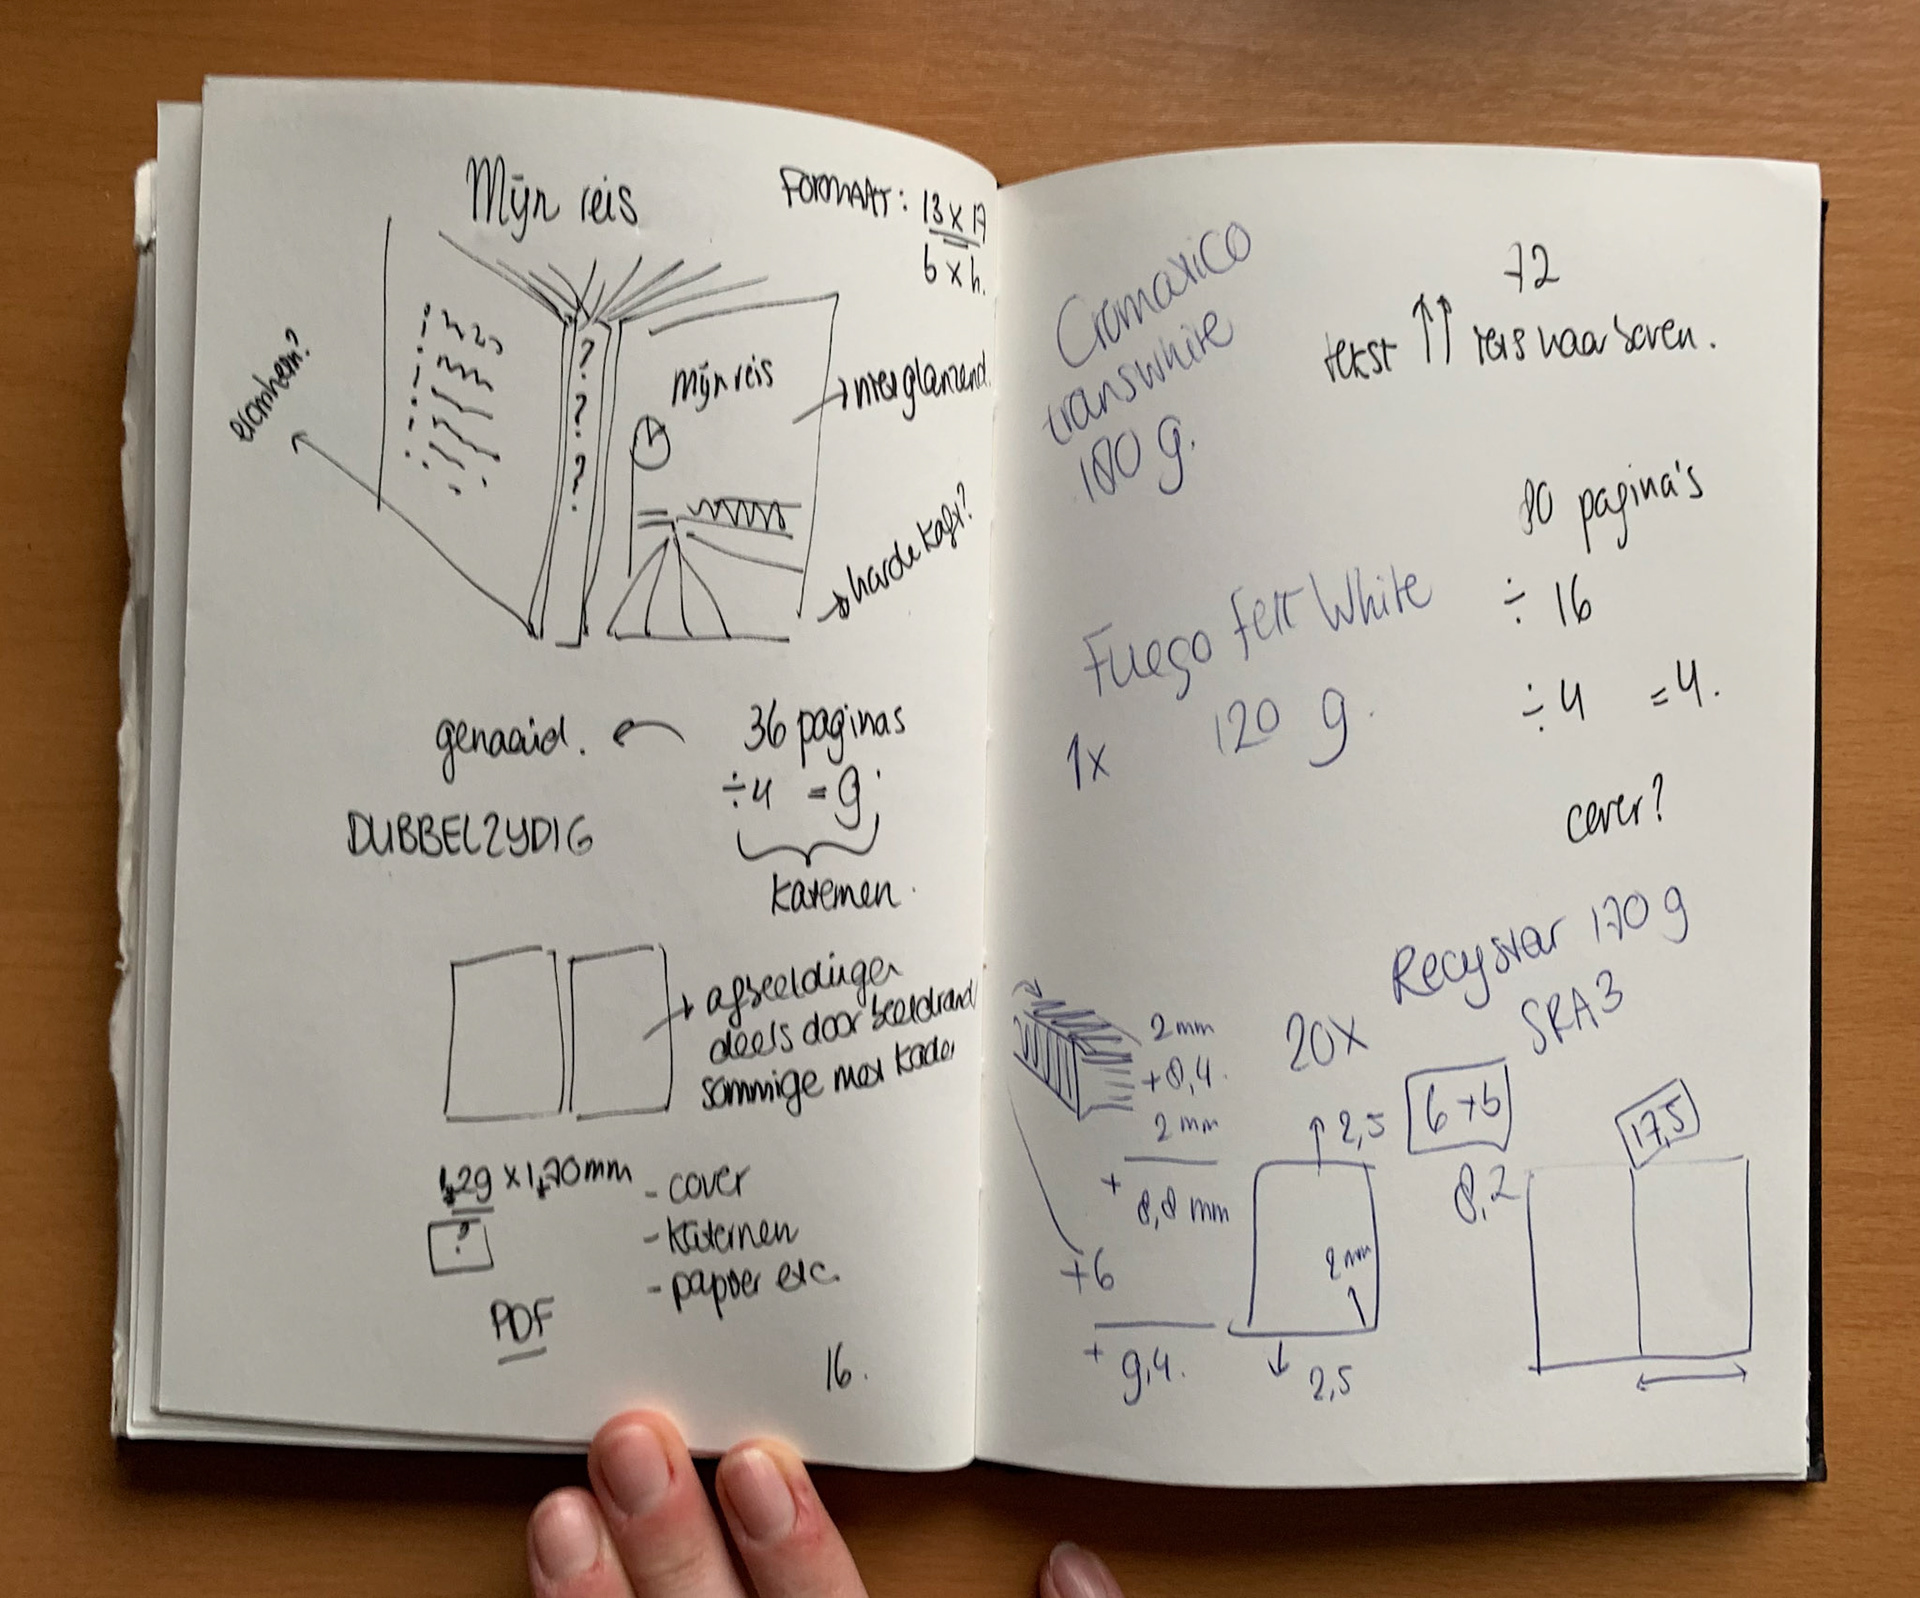 Mijn reis
FORMAAT: 13 x 17
b x h.
eromheen?
? ? ? ?
mijn reis
niet glanzend.
harde kaft?
genaaid.
36 paginas
÷4 = 9
DUBBELZYDIG
katernen.
afbeeldingen
deels door beeldrand
sommige met kader
1,29 x 1,70mm
?
- cover
- katernen
- papier etc.
PDF
16.
Cromatico
transwhite
100 g.
72
tekst ↑↑ reis naar boven.
80 pagina's
÷ 16
÷ 4 = 4.
Fuego Felt White
1x 120 g.
cover?
Recystar 170 g
SRA3
20x
2mm
+0,4.
2mm
+
+6
+
9,4.
↑ 2,5
2mm
↓ 2,5
8,2
17,5